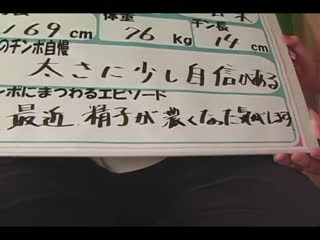 169cm 体重 76kg チン長 14cm
のチンポ自慢
太さに少し自信がある
ンポにまつわるエピソード
最近 精子が濃くなった気がします